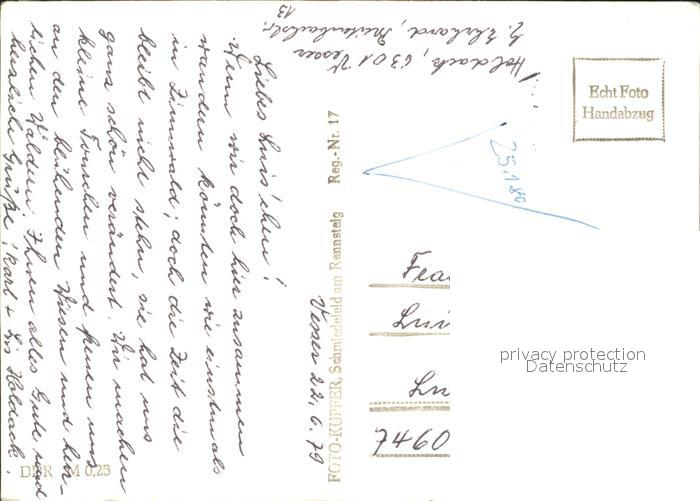 Holdack, 6301 Vesser
b. Ehrhard, Breitenbachstr.
13
Vesser 22.6.79
Liebes Luis'chen!
Wenn wir doch hier zusammen
wandern könnten wie einstmals
in Zinnwald; doch die Zeit die
bleibt nicht stehn, sie hat uns
ganz schön verändert. Wir machen
kleine Touren und freuen uns
an den blühenden Wiesen und herr-
lichen Wäldern. Ihnen alles Gute und
herzliche Grüße, Karl + Lis Holdack.
DDR M 0,25
FOTO-KUPFER, Schmiedefeld am Rennsteig Reg.-Nr. 17
Echt Foto
Handabzug
25.1.80
Frau
Lui
Lu
7460
privacy protection
Datenschutz